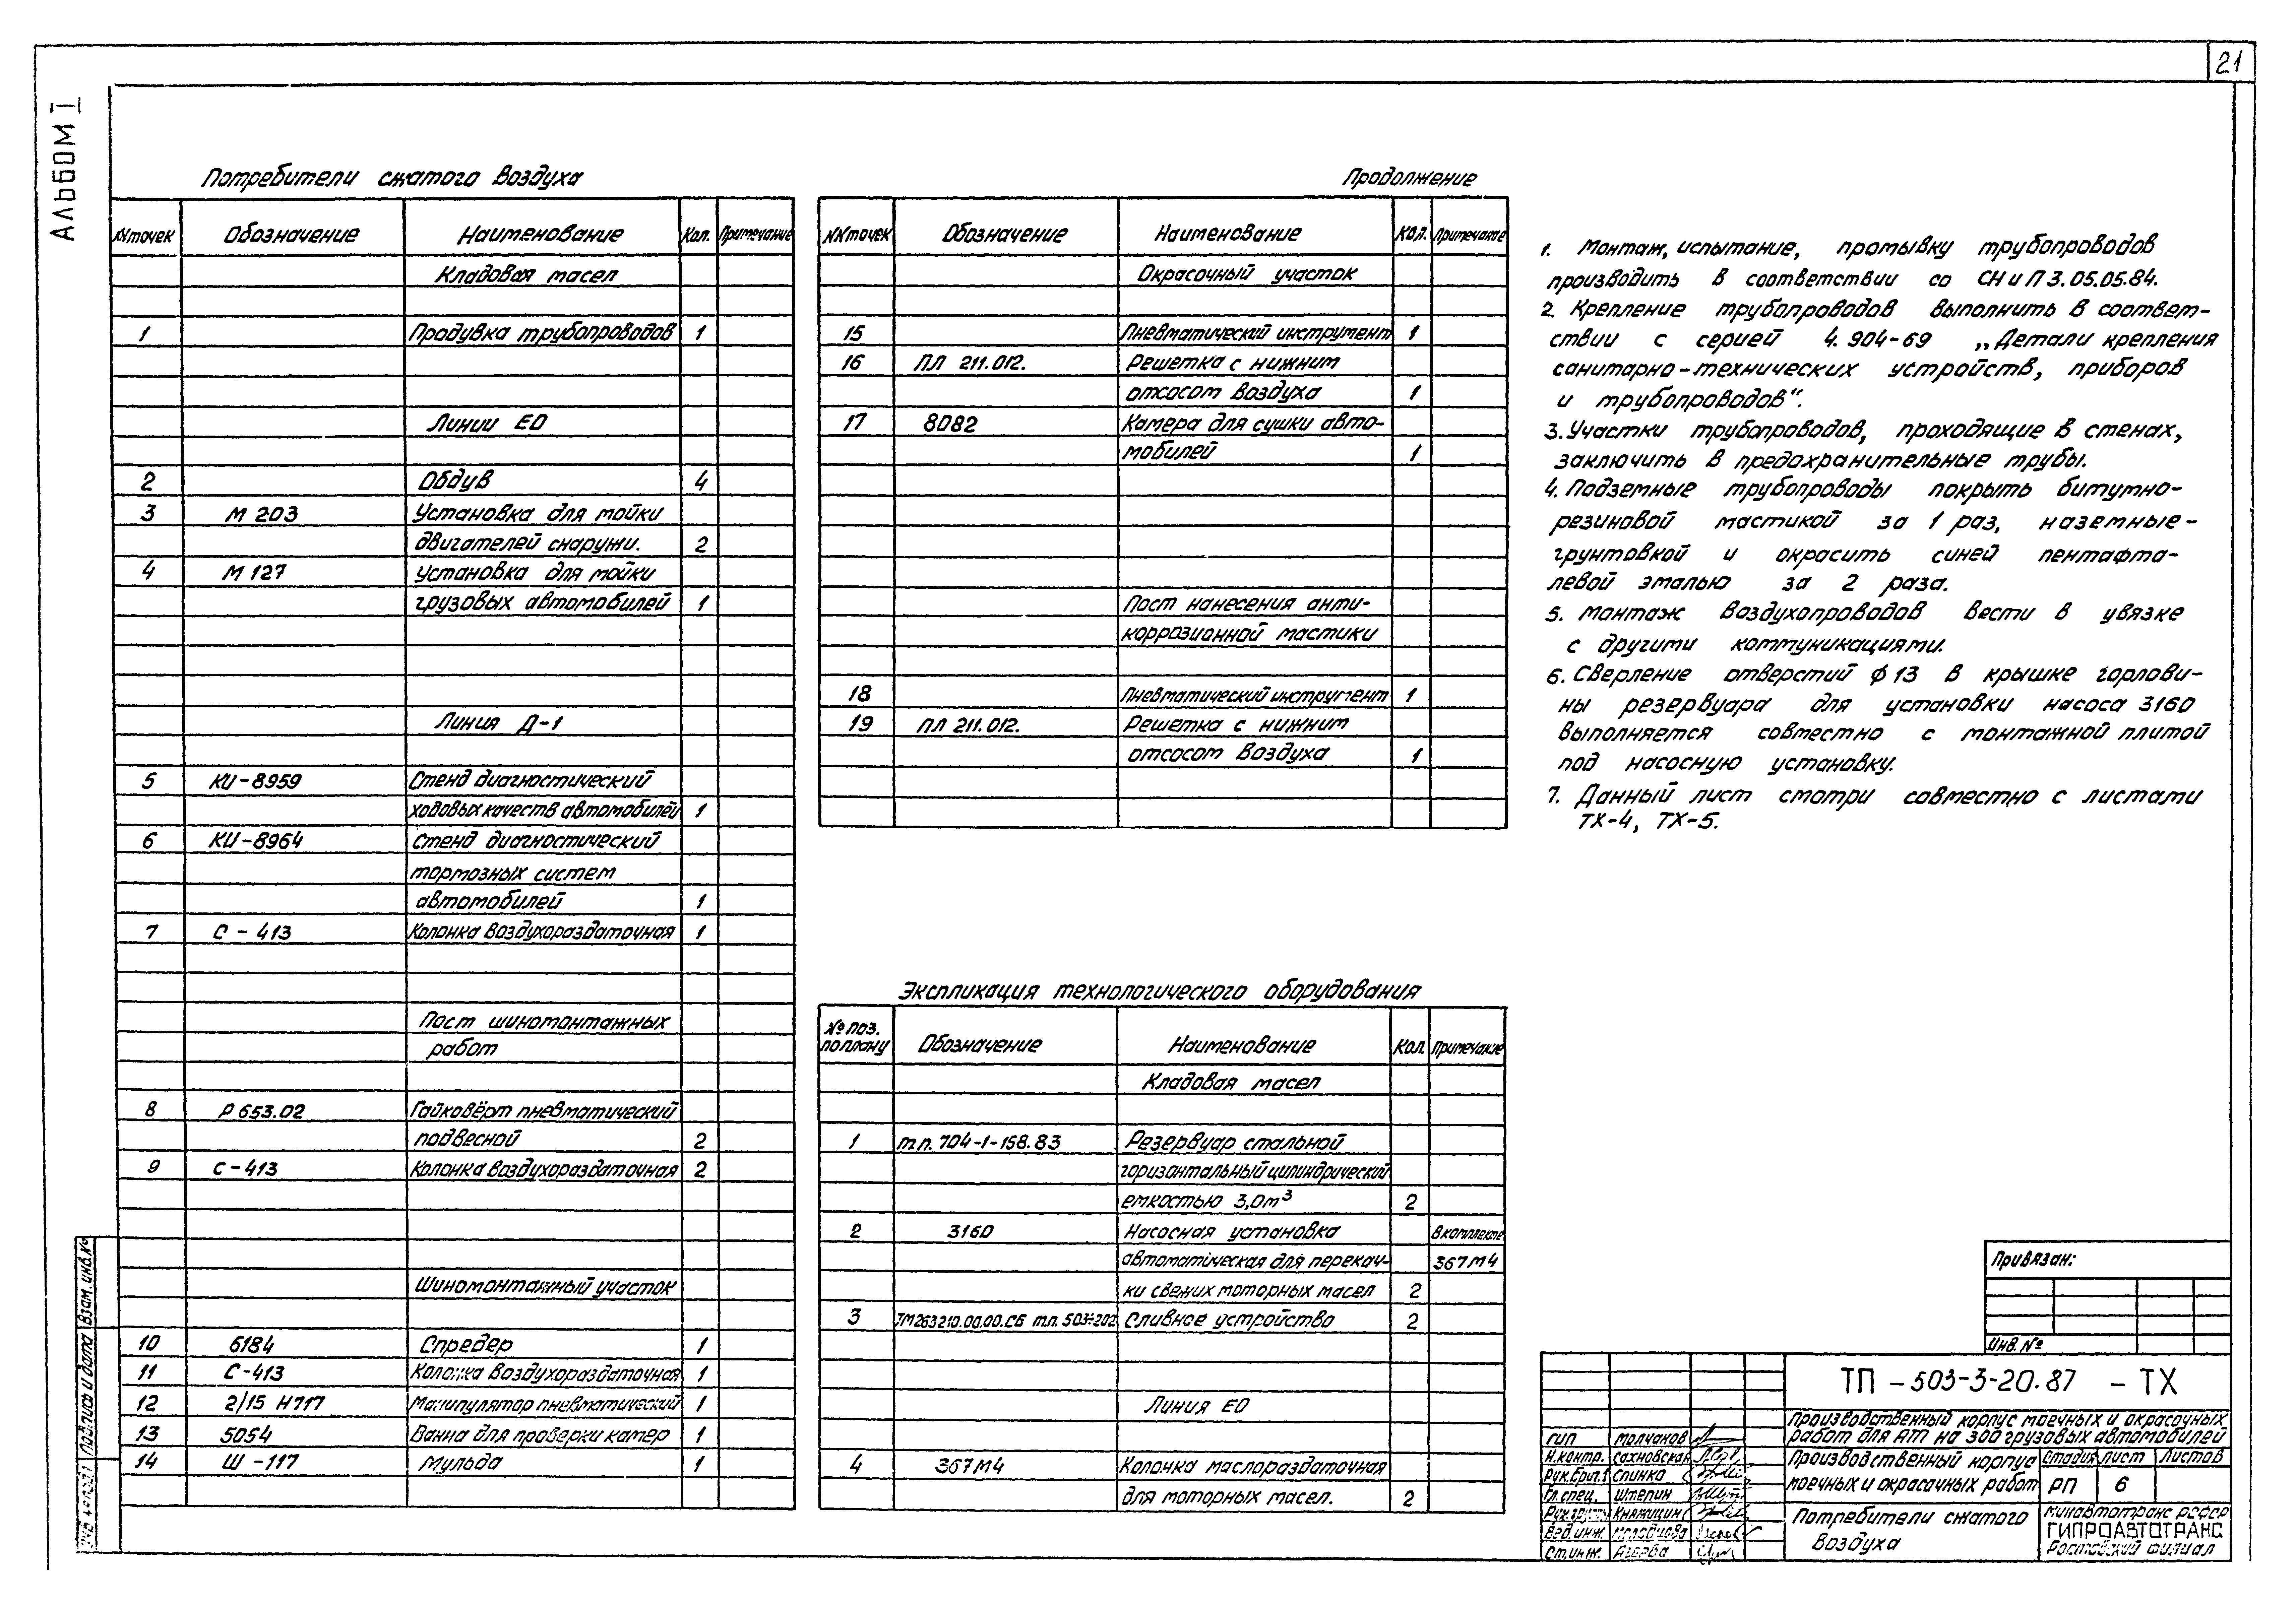 21
АЛЬБОМ I
Потребители сжатого воздуха
NN точек Обозначение Наименование Кол. Примечание
Кладовая масел
1 Продувка трубопроводов 1
Линии ЕО
2 Обдув 4
3 М 203 Установка для мойки
двигателей снаружи. 2
4 М 127 Установка для мойки
грузовых автомобилей 1
Линия Д-1
5 КИ-8959 Стенд диагностический
ходовых качеств автомобилей 1
6 КИ-8964 Стенд диагностический
тормозных систем
автомобилей 1
7 С-413 Колонка воздухораздаточная 1
Пост шиномонтажных
работ
8 Р 653.02 Гайковёрт пневматический
подвесной 2
9 С-413 Колонка воздухораздаточная 2
Шиномонтажный участок
10 6184 Спредер 1
11 С-413 Колонка воздухораздаточная 1
12 2/15 Н717 Манипулятор пневматический 1
13 5054 Ванна для проверки камер 1
14 Ш-117 Мульда 1
Продолжение
NN точек Обозначение Наименование Кол. Примечание
Окрасочный участок
15 Пневматический инструмент 1
16 ПЛ 211.012. Решетка с нижним
отсосом воздуха 1
17 8082 Камера для сушки авто-
мобилей 1
Пост нанесения анти-
коррозионной мастики
18 Пневматический инструмент 1
19 ПЛ 211.012. Решетка с нижним
отсосом воздуха 1
Экспликация технологического оборудования
№ поз. по плану Обозначение Наименование Кол. Примечание
Кладовая масел
1 т.п. 704-1-158.83 Резервуар стальной
горизонтальный цилиндрический
емкостью 3,0м³ 2
2 316D Насосная установка В комплекте
автоматическая для перекач- 367М4
ки свежих моторных масел 2
3 ТМ263210.00.00.СБ т.п. Сливное устройство 2
Линия ЕО
4 367М4 Колонка маслораздаточная
для моторных масел. 2
1. Монтаж, испытание, промывку трубопроводов
производить в соответствии со СН и П 3.05.05.84.
2. Крепление трубопроводов выполнить в соответ-
ствии с серией 4.904-69 „Детали крепления
санитарно-технических устройств, приборов
и трубопроводов“.
3. Участки трубопроводов, проходящие в стенах,
заключить в предохранительные трубы.
4. Подземные трубопроводы покрыть битумно-
резиновой мастикой за 1 раз, наземные-
грунтовкой и окрасить синей пентафта-
левой эмалью за 2 раза.
5. Монтаж воздухопроводов вести в увязке
с другими коммуникациями.
6. Сверление отверстий ф 13 в крышке горлови-
ны резервуара для установки насоса 316D
выполняется совместно с монтажной плитой
под насосную установку.
7. Данный лист смотри совместно с листами
ТХ-4, ТХ-5.
Привязан:
Инв. №
ТП - 503-3-20.87 - ТХ
Производственный корпус моечных и окрасочных
работ для АТП на 300 грузовых автомобилей
Производственный корпус
моечных и окрасочных работ
Стадия Лист Листов
РП 6
Потребители сжатого
воздуха
Минавтотранс РСФСР
ГИПРОАВТОТРАНС
Ростовский филиал
ГИП Молчанов
Н.контр. Сахновская
Рук.бриг. Спинка
Гл.спец. Штепин
Княжицин
Вед.инж.
Ст.инж.
Взам. инв. №
Подпись и дата